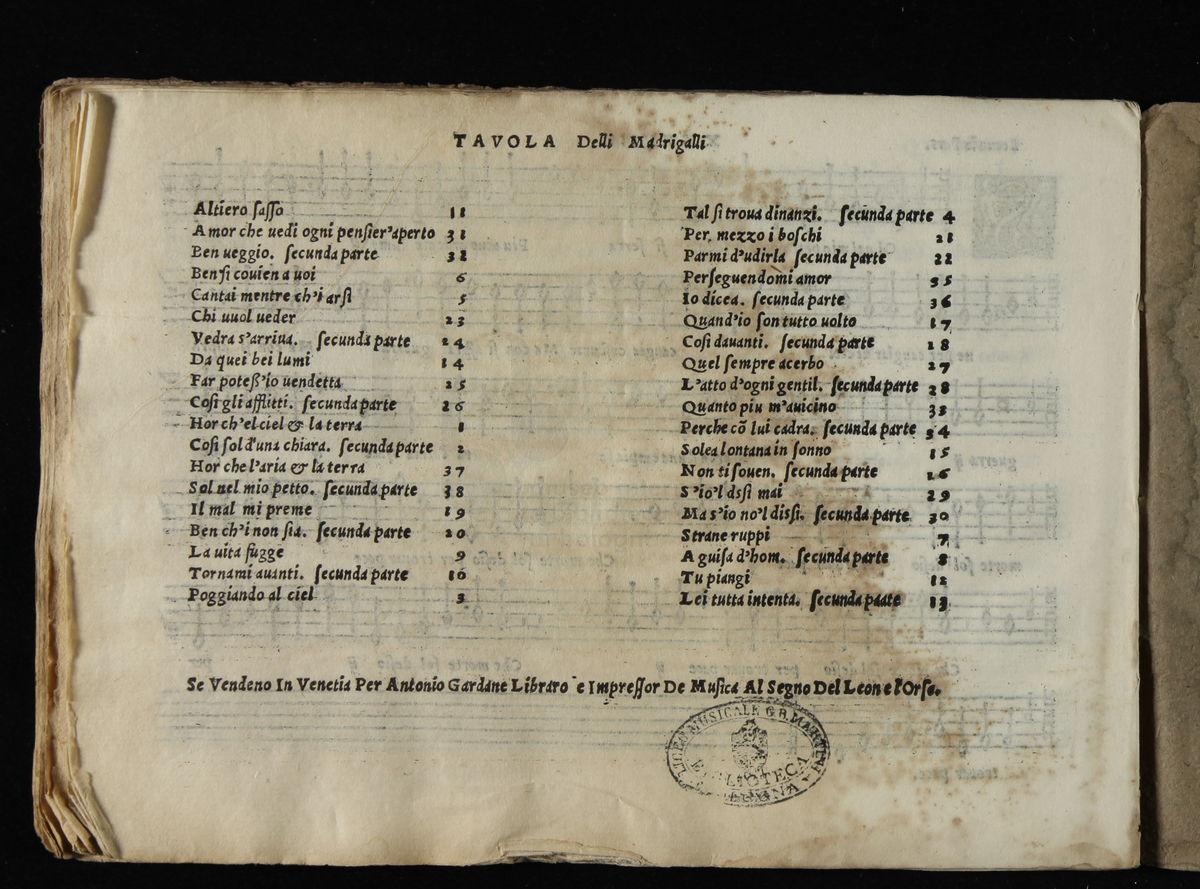 TAVOLA Delli Madrigalli
Altiero sasso 11
Amor che uedi ogni pensier'aperto 31
Ben ueggio. secunda parte 32
Bensi couien a uoi 6
Cantai mentre ch'i arsi 5
Chi uuol ueder 23
Vedra s'arriua. secunda parte 24
Da quei bei lumi 14
Far poteß'io uendetta 25
Cosi gli afflitti. secunda parte 26
Hor ch'el ciel & la terra 1
Cosi sol d'una chiara. secunda parte 2
Hor che l'aria & la terra 37
Sol nel mio petto. secunda parte 38
Il mal mi preme 19
Ben ch'i non sia. secunda parte 20
La uita fugge 9
Tornami auanti. secunda parte 10
Poggiando al ciel 3
Tal si troua dinanzi. secunda parte 4
Per mezzo i boschi 21
Parmi d'udirla secunda parte 22
Perseguendomi amor 35
Io dicea. secunda parte 36
Quand'io son tutto uolto 17
Cosi dauanti. secunda parte 18
Quel sempre acerbo 27
L'atto d'ogni gentil. secunda parte 28
Quanto piu m'auicino 33
Perche cõ lui cadra. secunda parte 34
Solea lontana in sonno 15
Non ti souen. secunda parte 16
S'io'l dssi mai 29
Ma s'io no'l dissi. secunda parte 30
Strane ruppi 7
A guisa d'hom. secunda parte 8
Tu piangi 12
Lei tutta intenta. secunda paate 13
Se Vendeno In Venetia Per Antonio Gardane Libraro e Impressor De Musica Al Segno Del Leon e l'Orso.
LICEO MUSICALE G.B. MARTINI
BIBLIOTECA
BOLOGNA